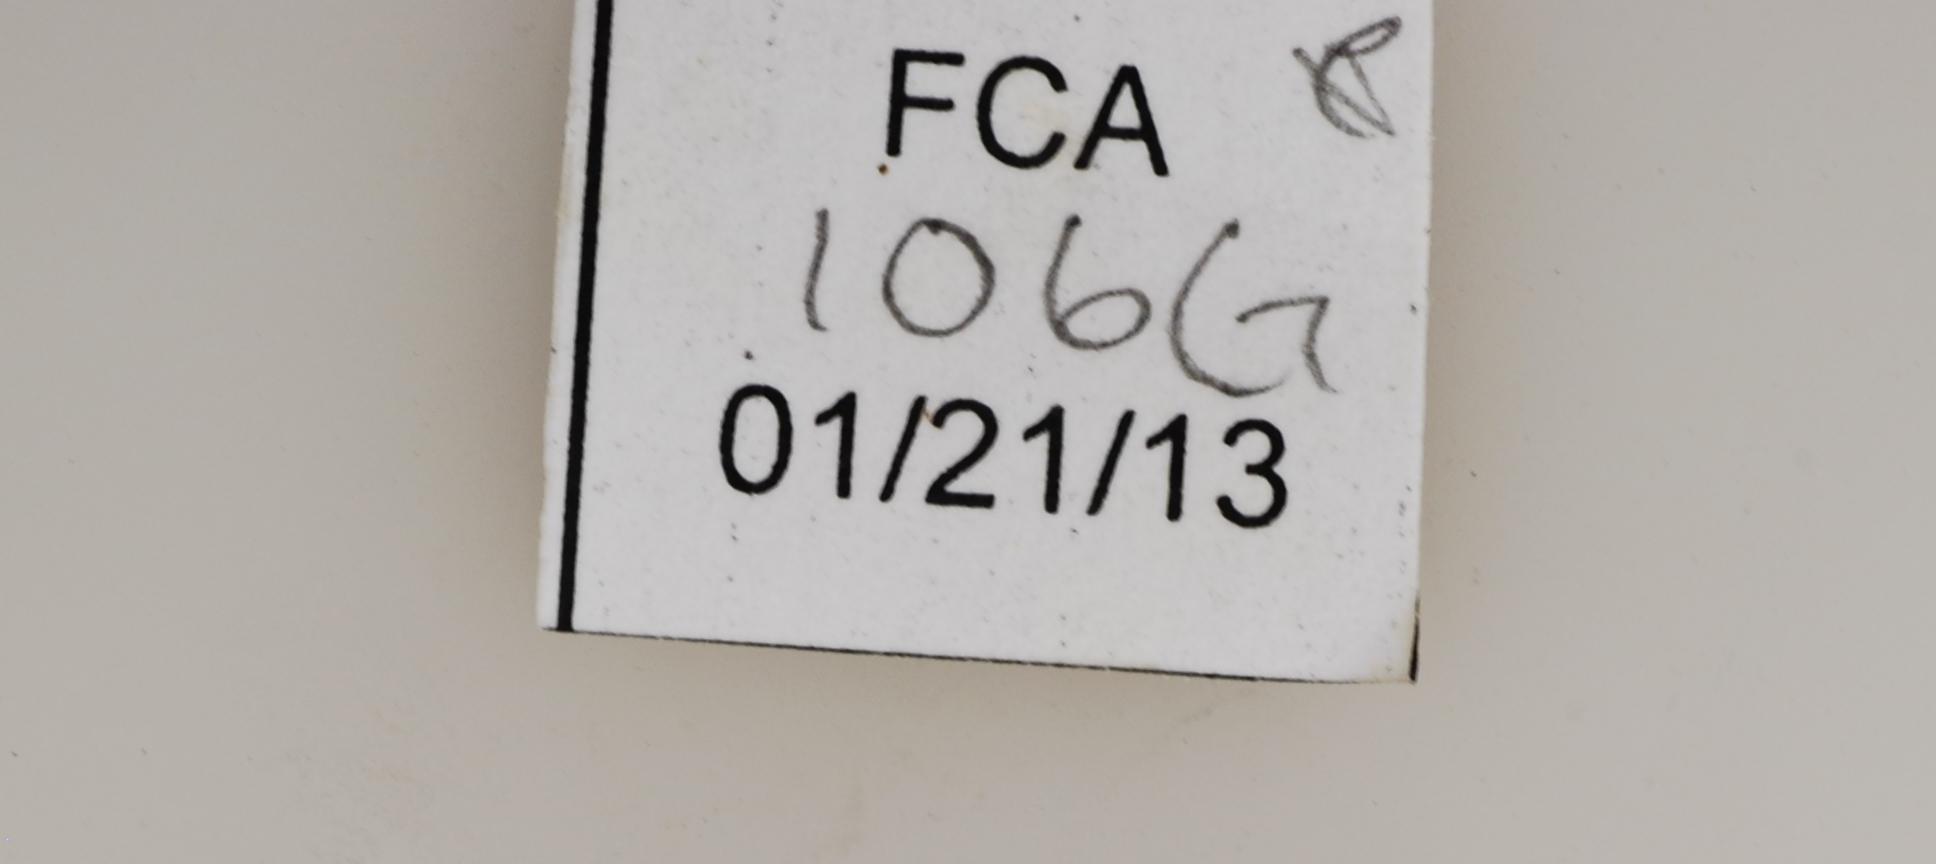 FCA
106G
01/21/13